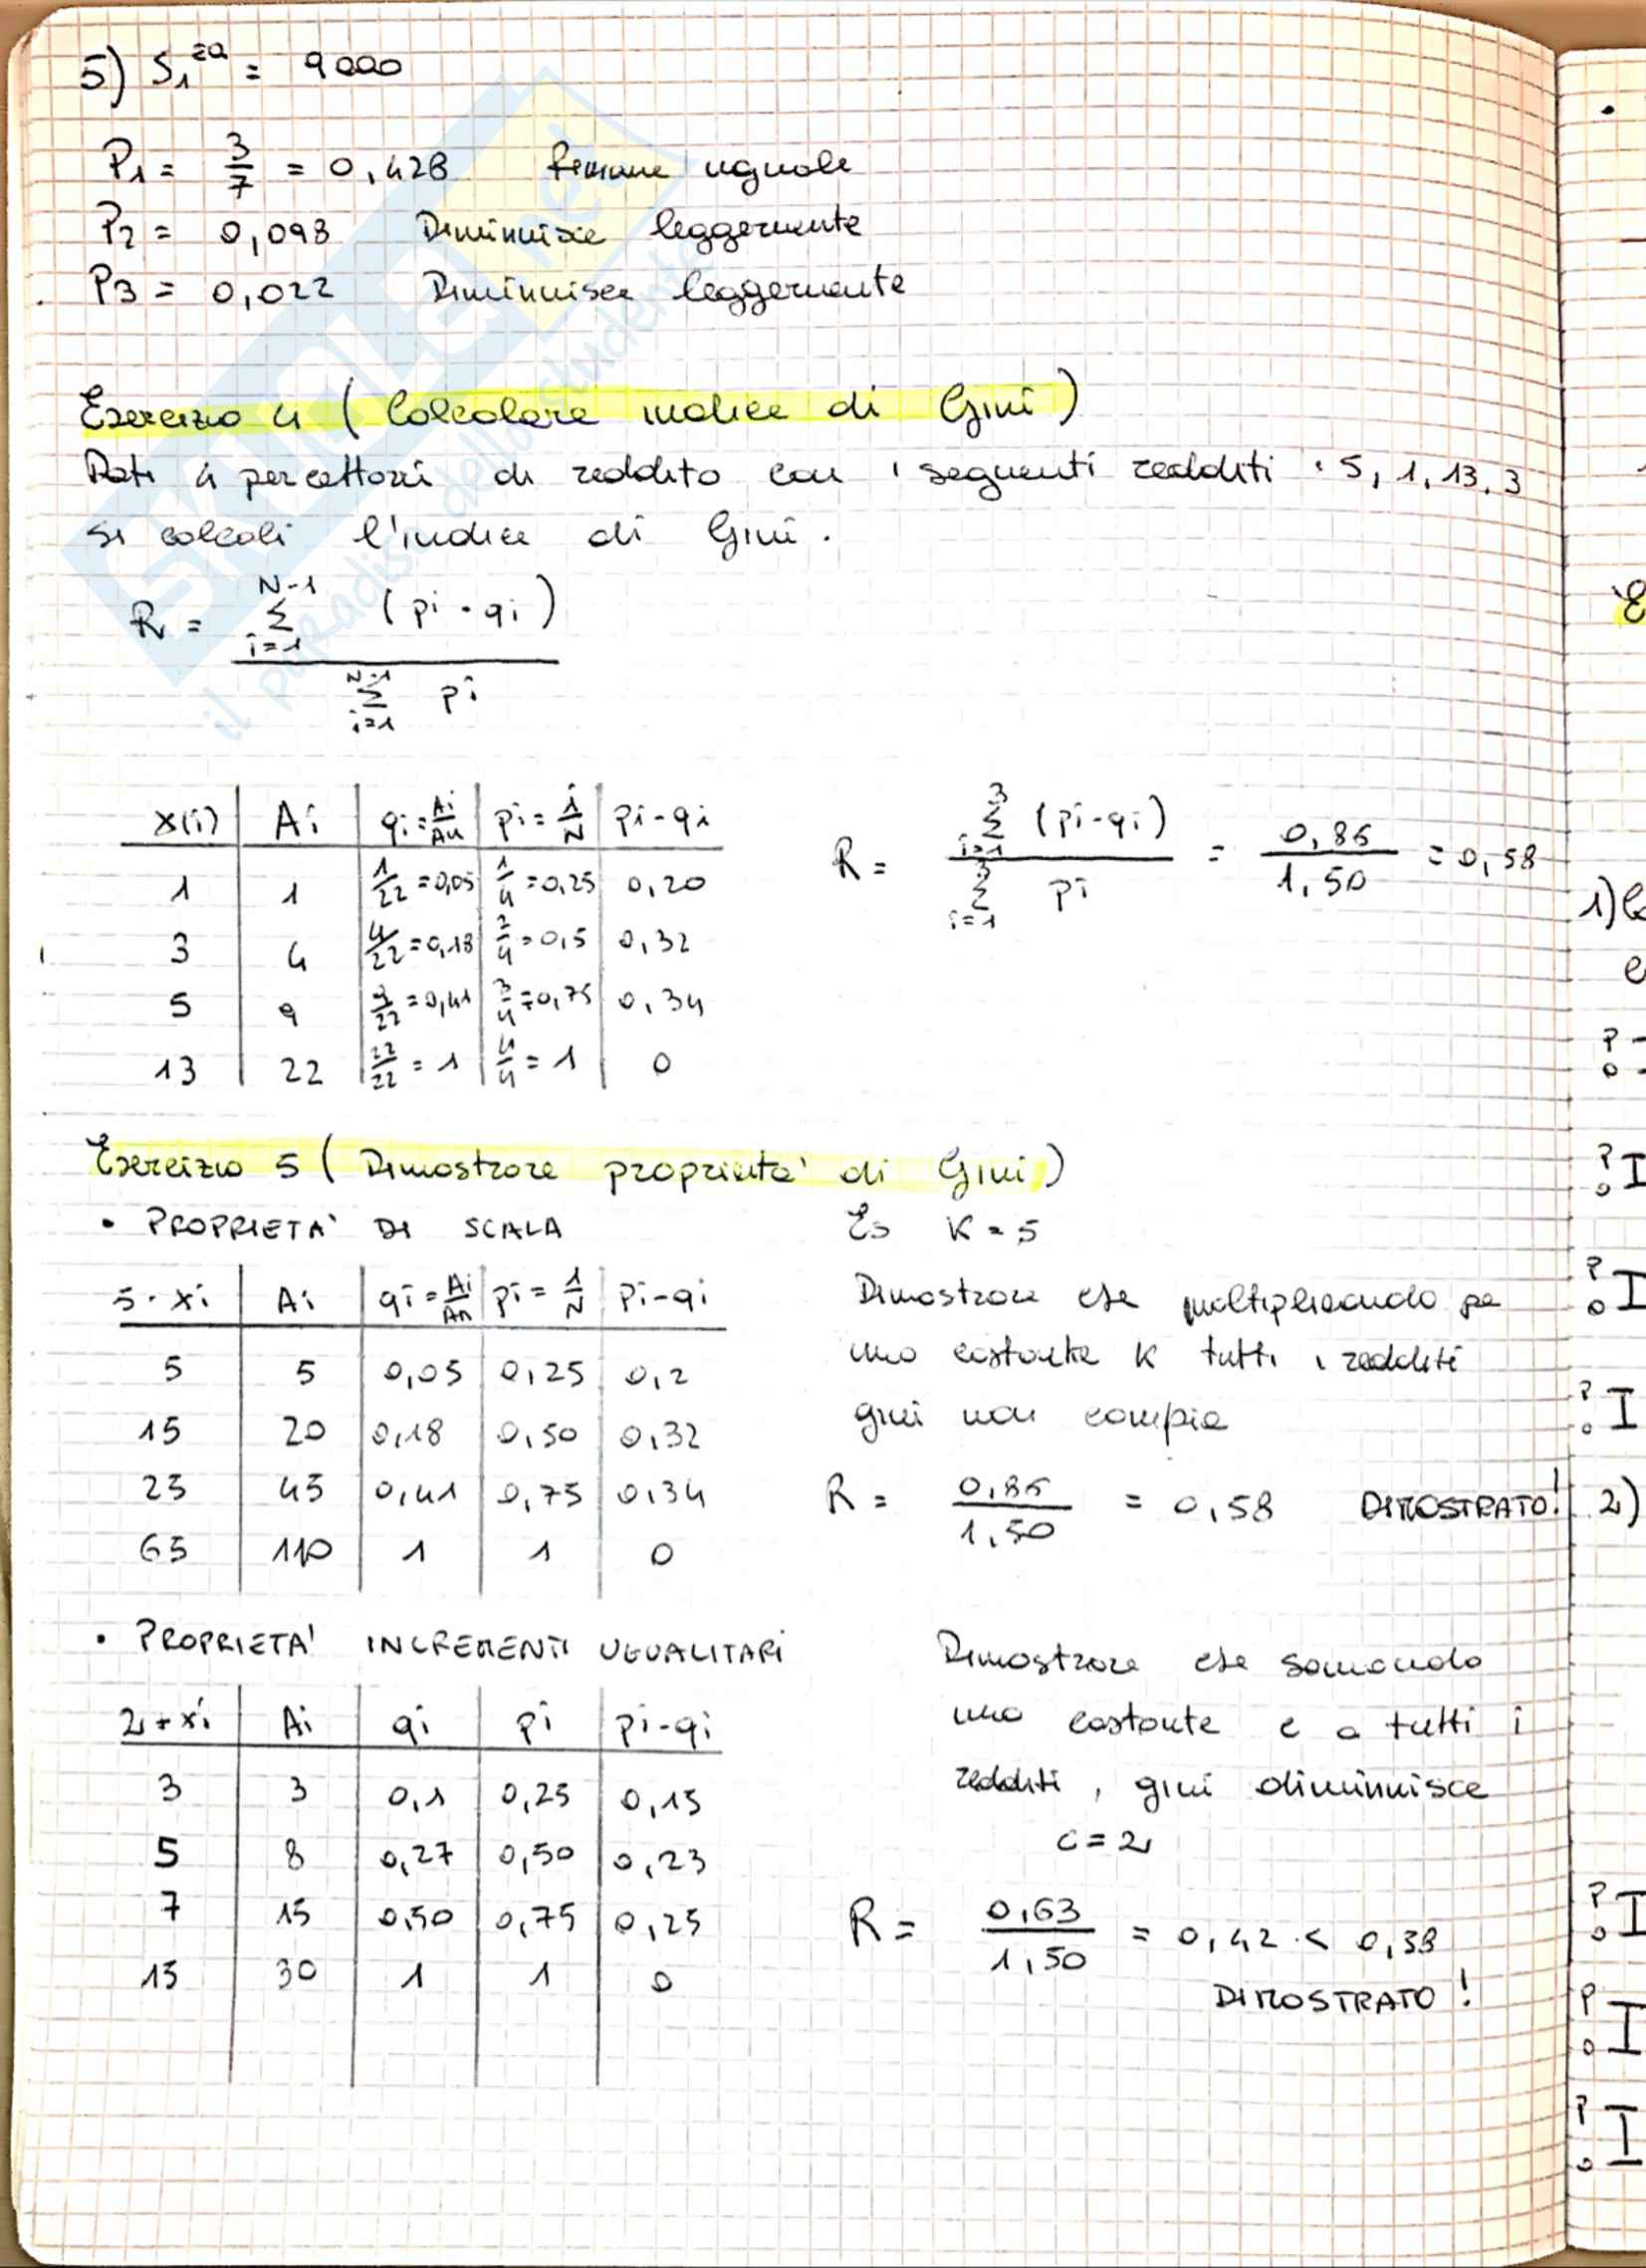 5) S₁^ZA = 9000
P₁ = 3/7 = 0,428 Rimane uguale
P₂ = 0,093 Diminuisce leggermente
P₃ = 0,022 Diminuisce leggermente
Esercizio 4 ( Calcolare indice di Gini )
Dati 4 percettori di reddito con i seguenti redditi : 5, 1, 13, 3
si calcoli l'indice di Gini .
R = N-1 Σ i=1 ( pi - qi ) / N-1 Σ i=1 pi
x(i) | Ai | qi = Ai/An | pi = i/N | pi-qi
1 | 1 | 1/22 = 0,05 | 1/4 = 0,25 | 0,20
3 | 4 | 4/22 = 0,18 | 2/4 = 0,5 | 0,32
5 | 9 | 9/22 = 0,41 | 3/4 = 0,75 | 0,34
13 | 22 | 22/22 = 1 | 4/4 = 1 | 0
R = 3 Σ i=1 (pi-qi) / 3 Σ i=1 pi = 0,86 / 1,50 = 0,58
Esercizio 5 ( Dimostrare proprietà di Gini )
• PROPRIETA' DI SCALA
Es K = 5
5 · xi | Ai | qi = Ai/An | pi = 1/N | pi-qi
5 | 5 | 0,05 | 0,25 | 0,2
15 | 20 | 0,18 | 0,50 | 0,32
25 | 45 | 0,41 | 0,75 | 0,34
65 | 110 | 1 | 1 | 0
Dimostrare che moltiplicando pe
una costante K tutti i redditi
gini non cambia
R = 0,86 / 1,50 = 0,58 DIMOSTRATO!
• PROPRIETA' INCREMENTI UGUALITARI
2 + xi | Ai | qi | pi | pi-qi
3 | 3 | 0,1 | 0,25 | 0,15
5 | 8 | 0,27 | 0,50 | 0,23
7 | 15 | 0,50 | 0,75 | 0,25
15 | 30 | 1 | 1 | 0
Dimostrare che sommando
una costante c a tutti i
redditi , gini diminuisce
c = 2
R = 0,63 / 1,50 = 0,42 < 0,58
DIMOSTRATO !
1)
2)
SKUOLA.net
il paradiso dello studente